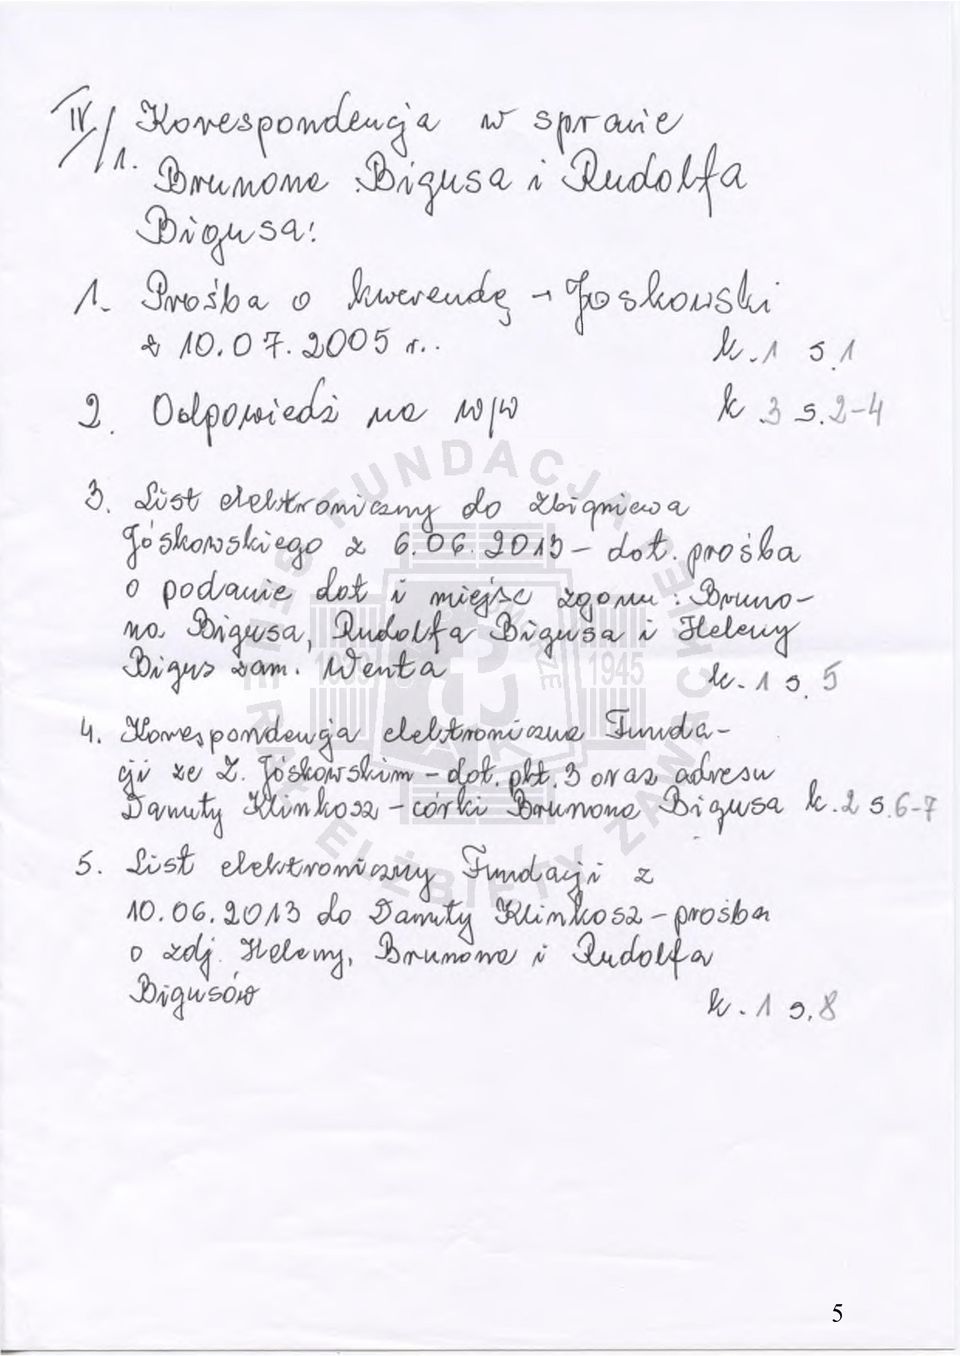 IV/1. Korespondencja w sprawie
Brunona Bigusa i Rudolfa
Bigusa:
1. Prośba o kwerendę → Joskowski
z 10.07.2005 r.. k.1 s.1
2. Odpowiedź na w/w k 3 s.2-4
3. List elektroniczny do Zbigniewa
Jóskowskiego z 6.06.2013 - dot. prośba
o podanie dat i miejsc zgonu: Bruno-
na Bigusa, Rudolfa Bigusa i Heleny
Bigus zam. Wenta k. 1 s. 5
4. Korespondencja elektroniczna Funda-
cji ze Z. Jóskowskim - dot. pkt. 3 oraz adresu
Danuty Klinkosz - córki Brunona Bigusa k. 2 s. 6-7
5. List elektroniczny Fundacji z
10.06.2013 do Danuty Klinkosz - prośba
o zdj. Heleny, Brunona i Rudolfa
Bigusów k. 1 s. 8
FUNDACJA GENERAŁ ELŻBIETY ZAWACKIEJ
1939 1945
AK
5